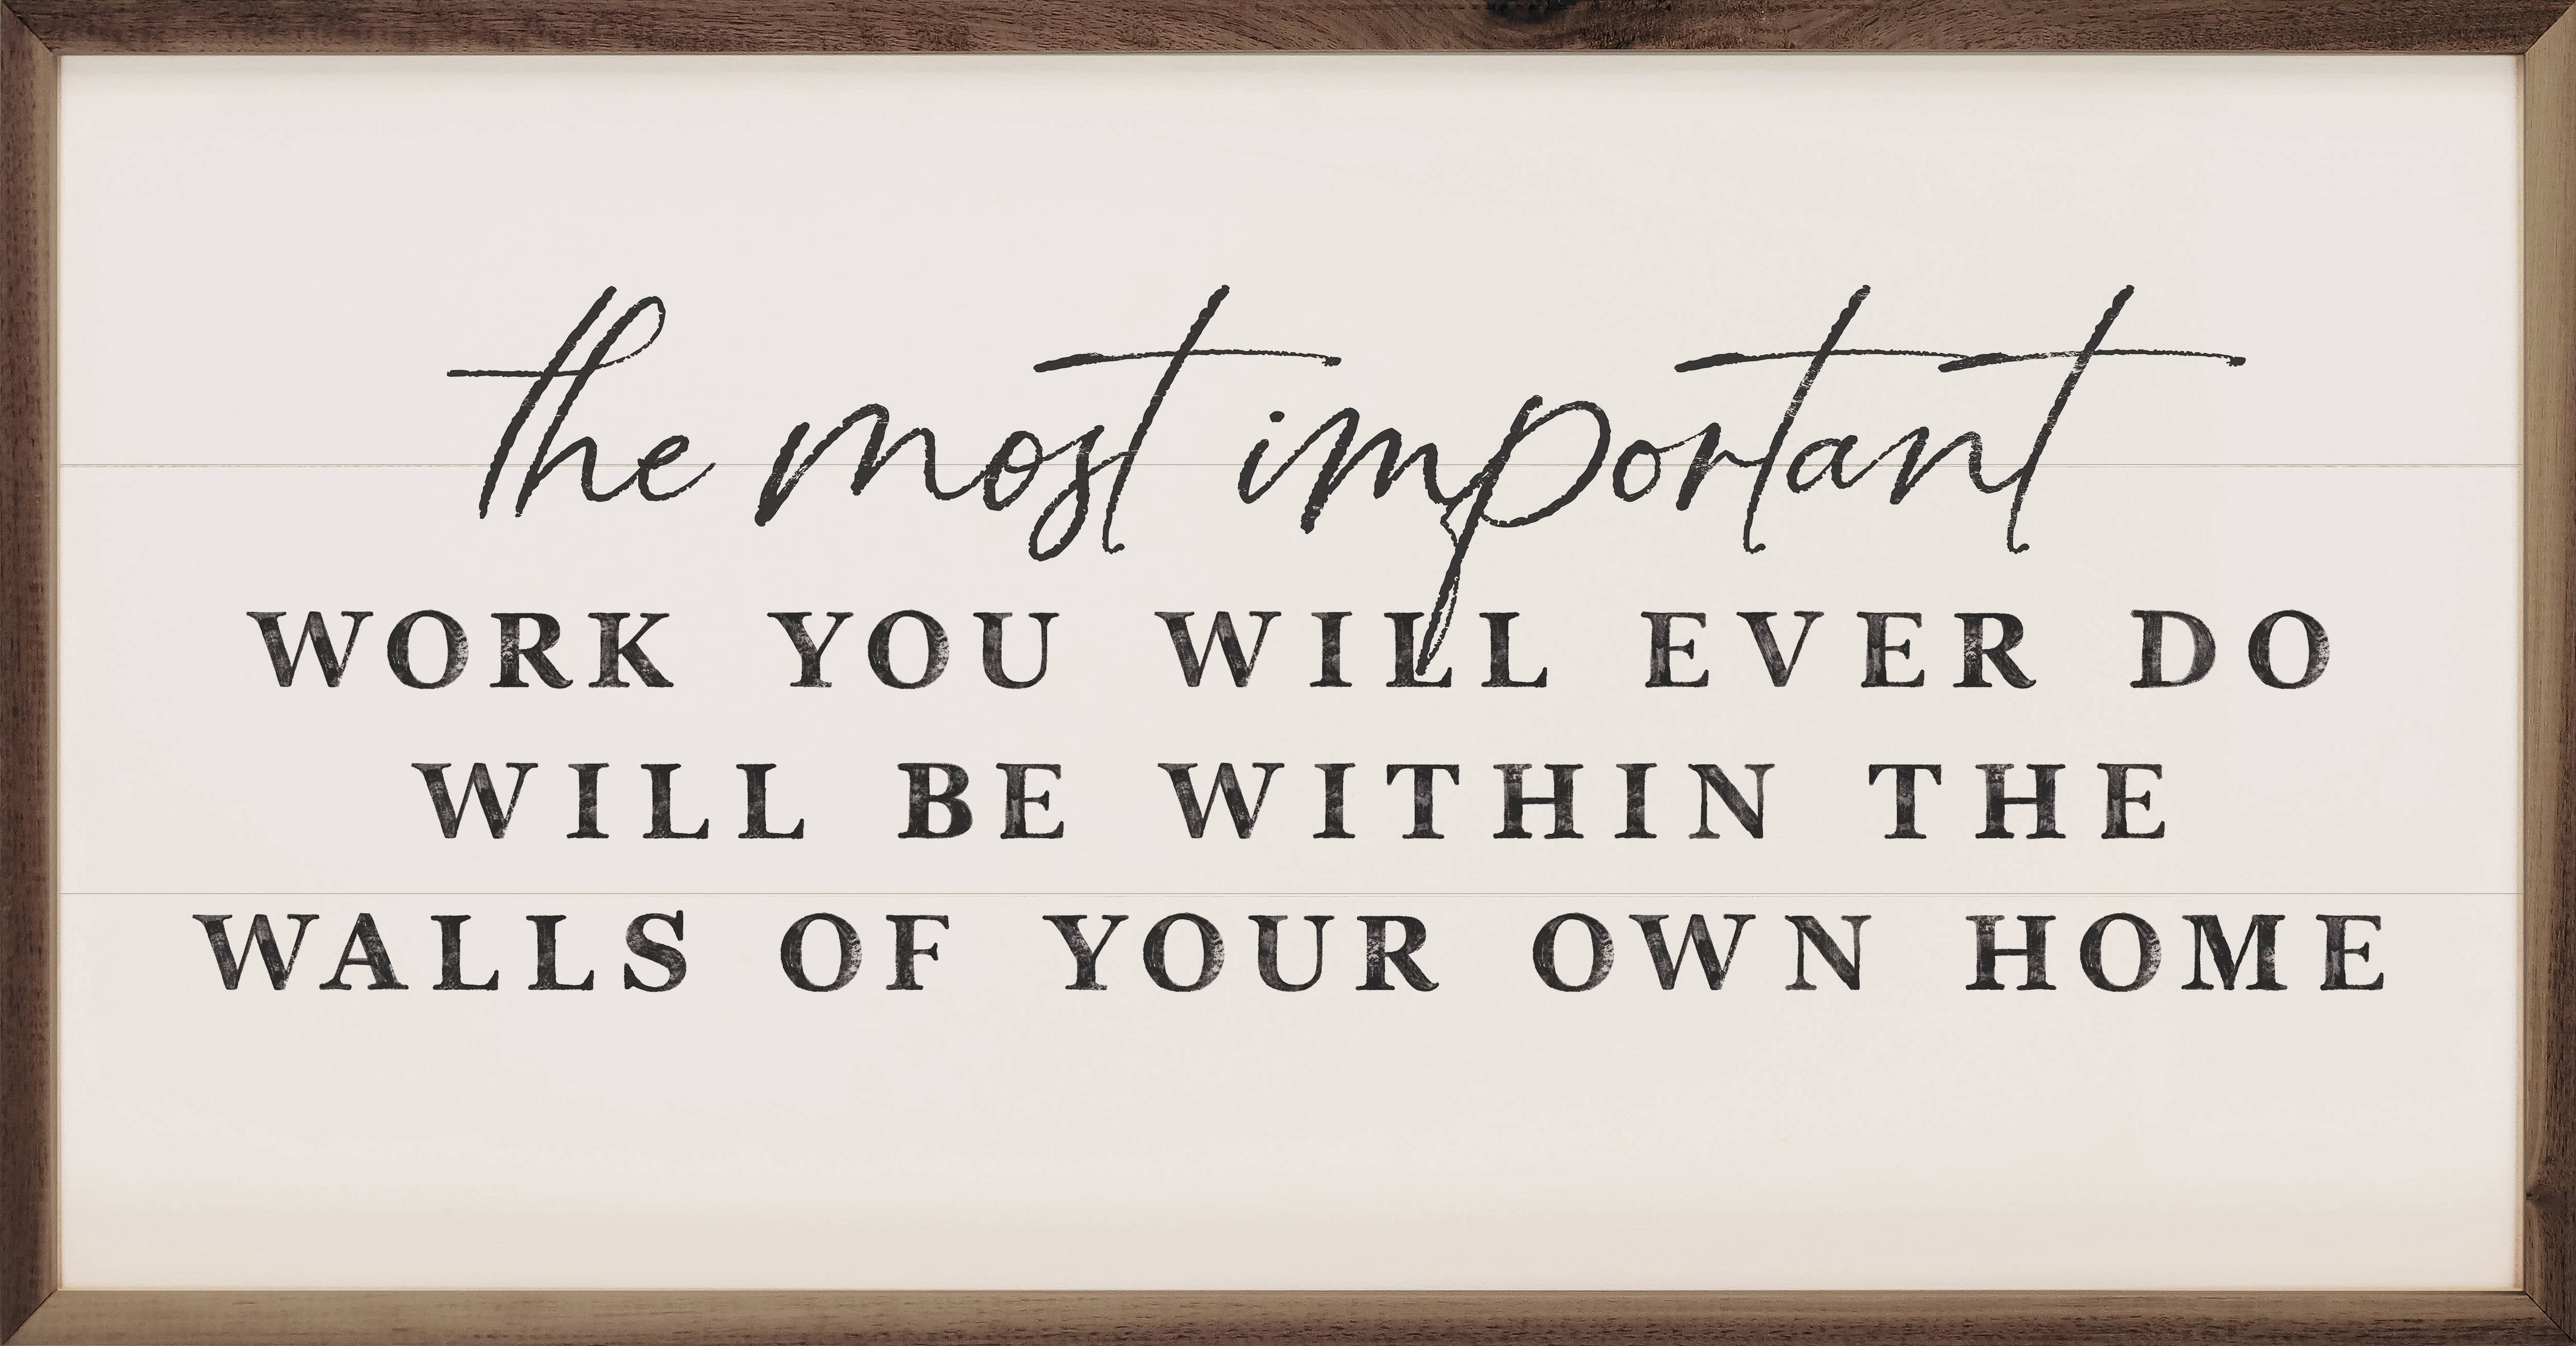 the most important
WORK YOU WILL EVER DO
WILL BE WITHIN THE
WALLS OF YOUR OWN HOME